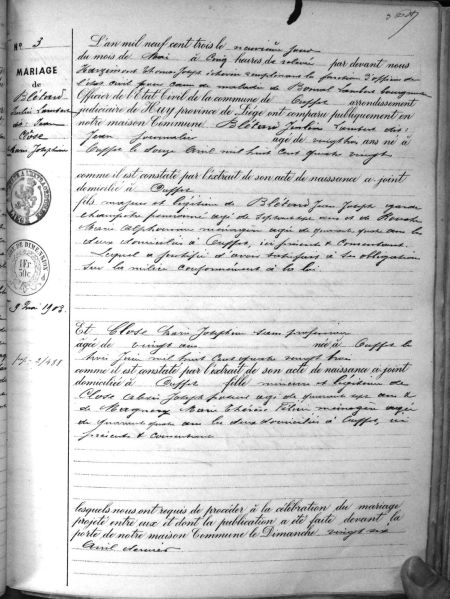 N° 3
MARIAGE
de
Blétard
Julien Lambert
dit: Jean
&
Close
Marie Joséphine
9 Mai 1903.
L'an mil neuf cent trois le neuvième jour
du mois de Mai à Cinq heures de relevée par devant nous
Joseph échevin remplissant la fonction d'officier de
l'état civil pour cause de maladie de Lambert bourgmestre
Officier de l'Etat Civil de la commune de Ouffet arrondissement
judiciaire de Huy province de Liège ont comparu publiquement en
notre maison Commune Blétard Julien Lambert dit:
Jean Journalier âgé de vingt trois ans né à
Ouffet le seize Avril mil huit cent quatre vingt
comme il est constaté par l'extrait de son acte de naissance ci joint
domicilié à Ouffet
fils majeur et légitime de Blétard Jean Joseph garde
champêtre pensionné âgé de septante ans et de
Marie Alphonsine ménagère âgée de quarante quatre ans les
deux domiciliés à Ouffet, ici présents & consentant.
Lequel a justifié d'avoir satisfait à ses obligations
sur la milice conformément à la loi
Et Close Marie Joséphine sans profession
âgée de vingt ans née à Ouffet le
trois Juin mil huit cent quatre vingt trois
comme il est constaté par l'extrait de son acte de naissance ci joint
domiciliée à Ouffet fille mineure et légitime de
Close Joseph âgé de quarante sept ans &
de Marie Thérèse ménagère âgée
de quarante quatre ans les deux domiciliés à Ouffet, ici
présents & consentant
lesquels nous ont requis de procéder à la célébration du mariage
projeté entre eux et dont la publication a été faite devant la
porte de notre maison Commune le Dimanche vingt six
Avril dernier